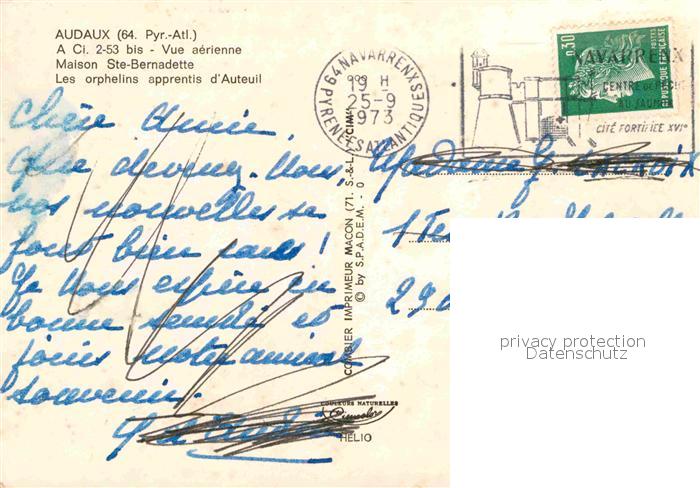 AUDAUX (64. Pyr.-Atl.)
A Ci. 2-53 bis - Vue aérienne
Maison Ste-Bernadette
Les orphelins apprentis d'Auteuil
Chère Amie,
Que devenez-vous,
vos nouvelles se
font bien rares !
Je vous espère en
bonne santé et
joins notre amical
souvenir.
COMBIER IMPRIMEUR MACON (71. S.-&-L.) "CIM"
© by S.P.A.D.E.M. - 0
COULEURS NATURELLES
HELIO
64 NAVARRENX
19 H
25-9
1973
PYRÉNÉES ATLANTIQUES
NAVARRENX
CENTRE DE
CITÉ FORTIFIÉE XVIe
0,30
POSTES
REPUBLIQUE FRANÇAISE
Madame G.
1
290
privacy protection
Datenschutz